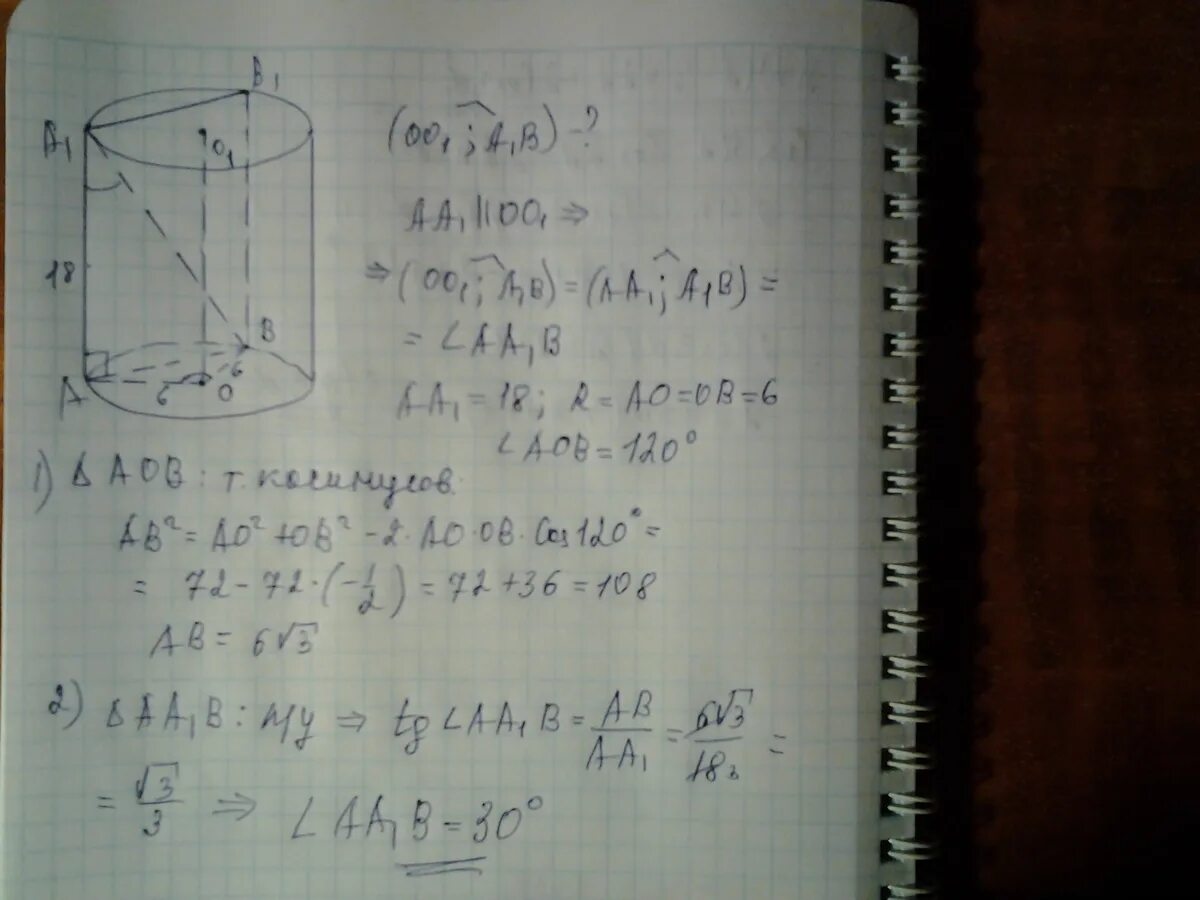 B₁
A₁
O₁
18
B
A
6
6
O
(OO₁ ; A₁B) - ?
AA₁ || OO₁ ⇒
⇒ (OO₁ ; A₁B) = (AA₁ ; A₁B) =
= ∠AA₁B
AA₁ = 18 ; R = AO = OB = 6
∠AOB = 120°
1) Δ AOB : т. косинусов:
AB² = AO² + OB² - 2 · AO · OB · Cos 120° =
= 72 - 72 · (-1/2) = 72 + 36 = 108
AB = 6√3
2) Δ AA₁B : п/у ⇒ tg ∠AA₁B = AB/AA₁ = 6√3/18₃ =
= √3/3 ⇒ ∠AA₁B = 30°